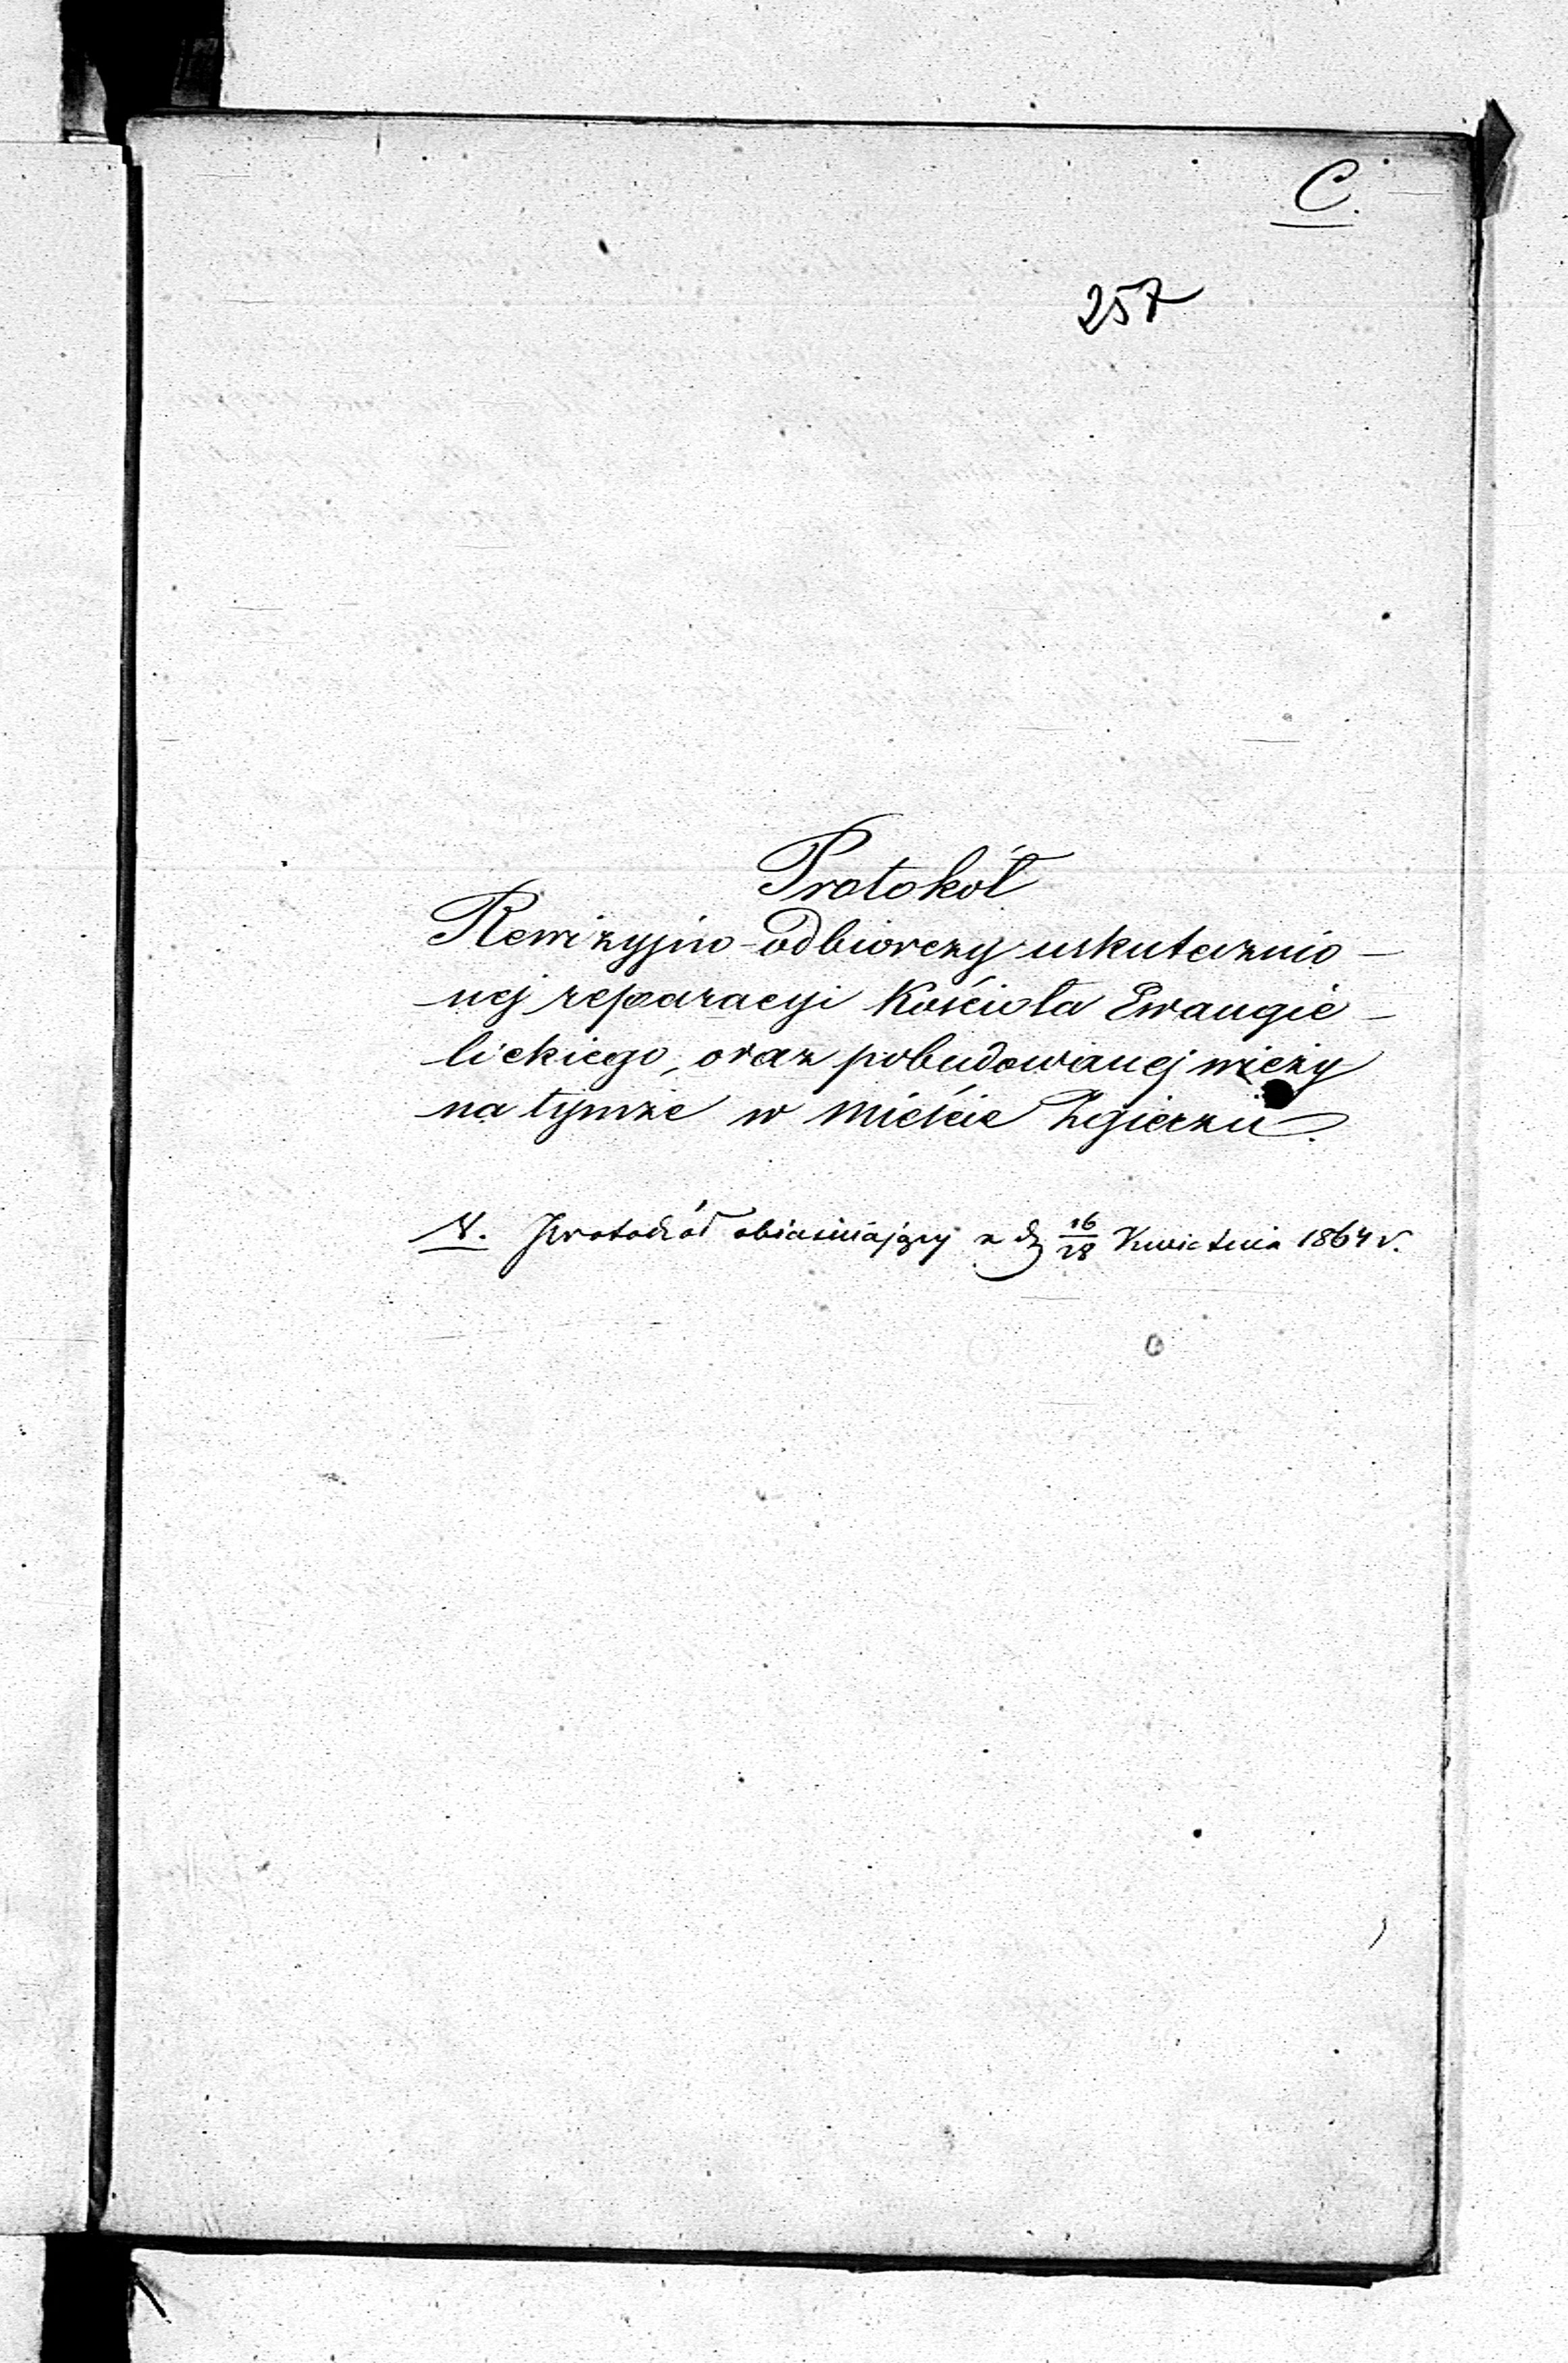 C.
257
Protokół
Rewizyjno-odbiorczy uskutecznio-
nej reparacyi Kościoła Ewangie-
lickiego, oraz pobudowanej wieży
na tymże w mieście Zgierzu.
Protokół obiaśniający z d. 16/28 Kwietnia 1864 r.